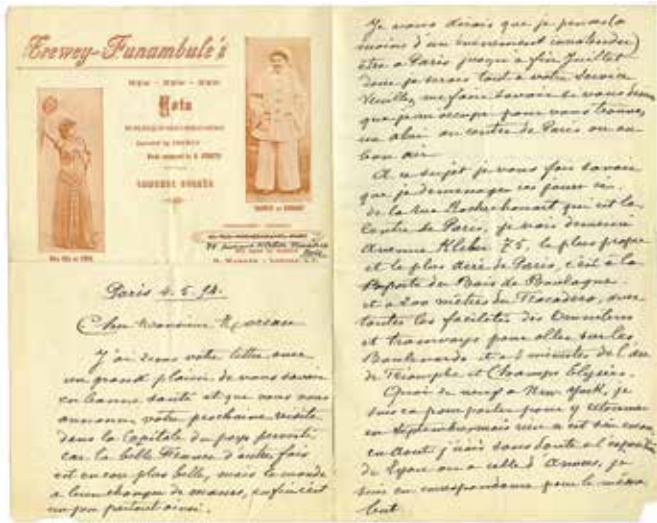 Trewey-Funambule's
Yota
Paris 4.5.94.
Cher Monsieur
J'ai reçu votre lettre avec
un grand plaisir de vous savoir
en bonne santé et que vous nous
annoncez votre prochaine visite
dans la Capitale du pays
car la belle France d'autre fois
est encore plus belle, mais le monde
a bien changé de manies, enfin c'est
un peu partout ainsi.
Je vous dirais que je pense (à
moins d'un évènement inattendu)
être à Paris jusqu'à fin Juillet
donc je serais tout à votre service
Veuillez me faire savoir si vous
que je m'occupe pour vous trouver
un abri au centre de Paris ou au
bon air.
A ce sujet je vous fais savoir
que je déménage ces jours ci.
de la Rue Rochechouart qui est le
Centre de Paris, je vais demeurer
Avenue Kléber 75, le plus propre
et le plus aéré de Paris, c'est à la
Porte du Bois de Boulogne
et à 200 mètres du Trocadero, avec
toutes les facilités des Omnibus
et tramways pour aller sur les
Boulevards et à 5 minutes de l'Arc
de Triomphe et Champs Elysées.
Quoi de neuf à New-York, je
suis en pourparler pour y retourner
en Septembre mais rien n'est sûr encore,
en Aout j'irais sans doute à l'exposition
de Lyon ou à celle d'Anvers, je
suis en correspondance pour le même
but